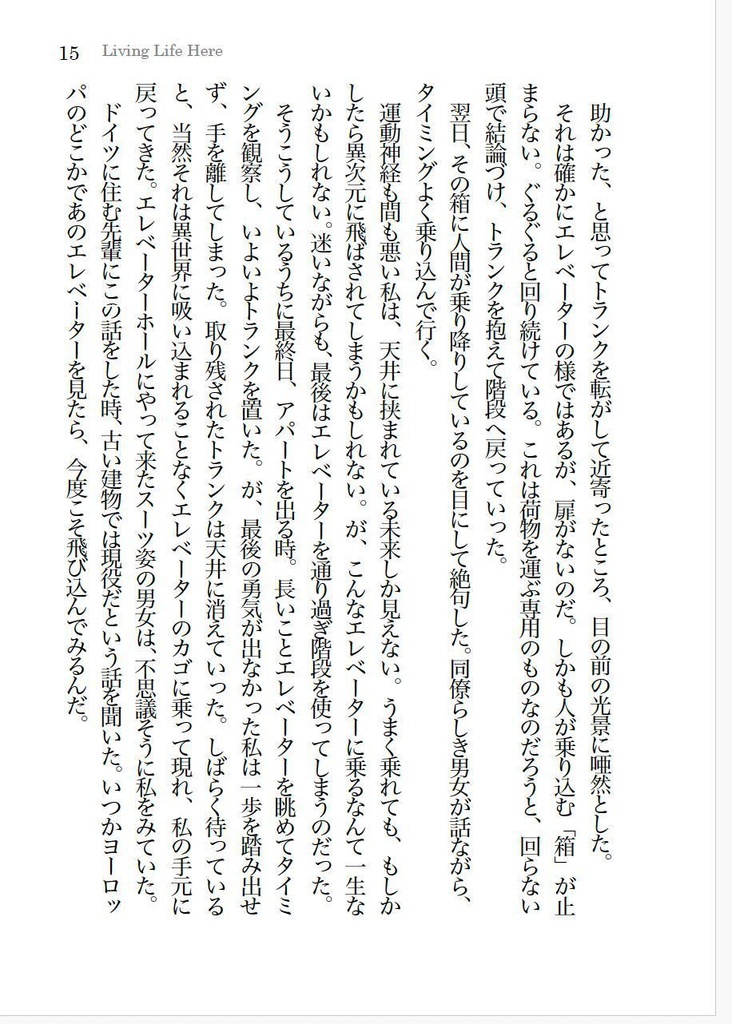 15 Living Life Here
助かった、と思ってトランクを転がして近寄ったところ、目の前の光景に唖然とした。
それは確かにエレベーターの様ではあるが、扉がないのだ。しかも人が乗り込む「箱」が止
まらない。ぐるぐると回り続けている。これは荷物を運ぶ専用のものなのだろうと、回らない
頭で結論づけ、トランクを抱えて階段へ戻っていった。
翌日、その箱に人間が乗り降りしているのを目にして絶句した。同僚らしき男女が話ながら、
タイミングよく乗り込んで行く。
運動神経も間も悪い私は、天井に挟まれている未来しか見えない。うまく乗れても、もしか
したら異次元に飛ばされてしまうかもしれない。が、こんなエレベーターに乗るなんて一生な
いかもしれない。迷いながらも、最後はエレベーターを通り過ぎ階段を使ってしまうのだった。
そうこうしているうちに最終日、アパートを出る時。長いことエレベーターを眺めてタイミ
ングを観察し、いよいよトランクを置いた。が、最後の勇気が出なかった私は一歩を踏み出せ
ず、手を離してしまった。取り残されたトランクは天井に消えていった。しばらく待っている
と、当然それは異世界に吸い込まれることなくエレベーターのカゴに乗って現れ、私の手元に
戻ってきた。エレベーターホールにやって来たスーツ姿の男女は、不思議そうに私をみていた。
ドイツに住む先輩にこの話をした時、古い建物では現役だという話を聞いた。いつかヨーロッ
パのどこかであのエレベーターを見たら、今度こそ飛び込んでみるんだ。